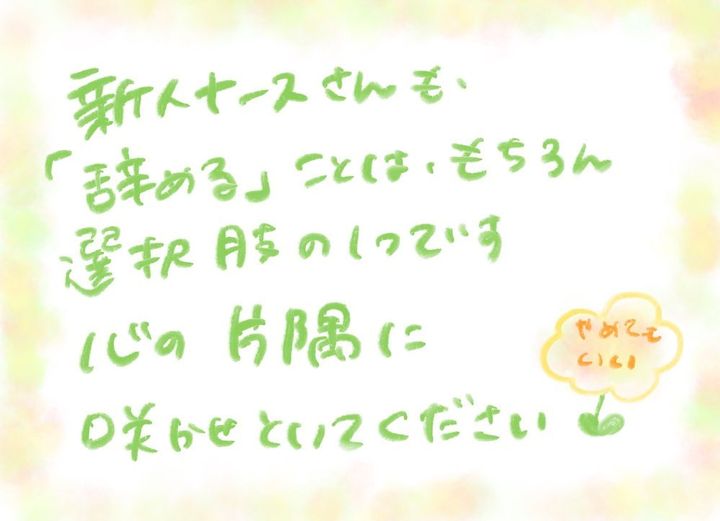 新人ナースさんも、
「辞める」ことは、もちろん
選択肢の1つです
心の片隅に
咲かせといてください
やめても
いい